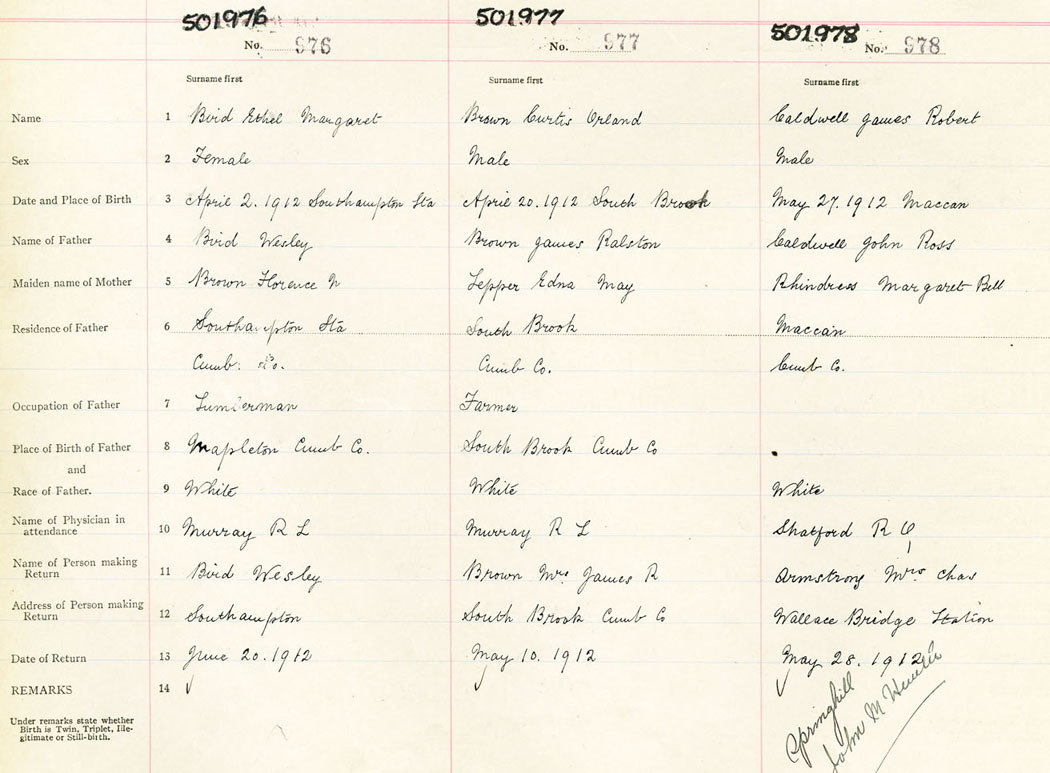 501976 501977 501978
No. 976 No. 977 No. 978
Surname first Surname first Surname first
Name 1 Bird Ethel Margaret Brown Curtis Orland Caldwell James Robert
Sex 2 Female Male Male
Date and Place of Birth 3 April 2. 1912 Southampton Sta April 20. 1912 South Brook May 27. 1912 Maccan
Name of Father 4 Bird Wesley Brown James Ralston Caldwell John Ross
Maiden name of Mother 5 Brown Florence Lepper Edna May Rhindress Margaret Bell
Residence of Father 6 Southampton Sta South Brook Maccan
Cumb. Co. Cumb Co. Cumb Co.
Occupation of Father 7 Lumberman Farmer
Place of Birth of Father 8 Mapleton Cumb Co. South Brook Cumb Co
and
Race of Father. 9 White White White
Name of Physician in
attendance 10 Murray R L Murray R L Shatford R
Name of Person making
Return 11 Bird Wesley Brown Mrs James R Armstrong Mrs Chas
Address of Person making
Return 12 Southampton South Brook Cumb Co Wallace Bridge Station
Date of Return 13 June 20. 1912 May 10. 1912 May 28. 1912
REMARKS 14 ✓ ✓ ✓
Under remarks state whether
Birth is Twin, Triplet, Ille-
gitimate or Still-birth.
Springhill
John M